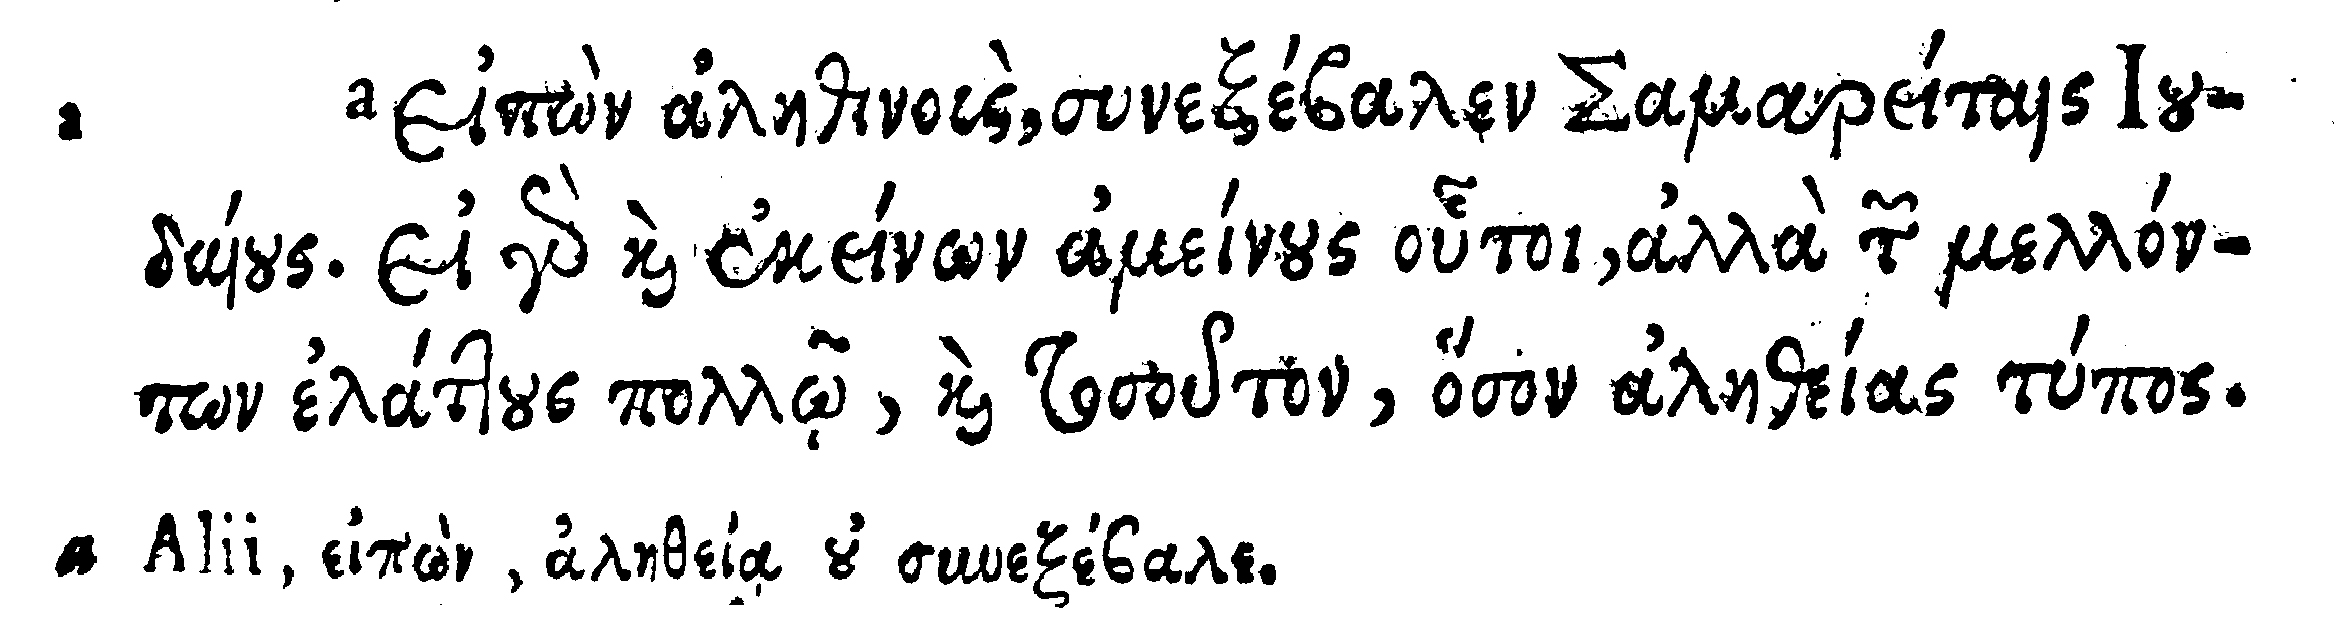 a ᵃ εἰπὼν ἀληθινοὶς, συνεξέβαλεν Σαμαρείταις Ἰου-
δαίους. εἰ γὰρ καὶ ἐκείνων ἀμείνους οὗτοι, ἀλλὰ τῶν μελλόν-
των ἐλάττους πολλῷ, καὶ τοσοῦτον, ὅσον ἀληθείας τύπος.
a Alii, εἰπὼν, ἀληθείᾳ οὐ συνεξέβαλε.